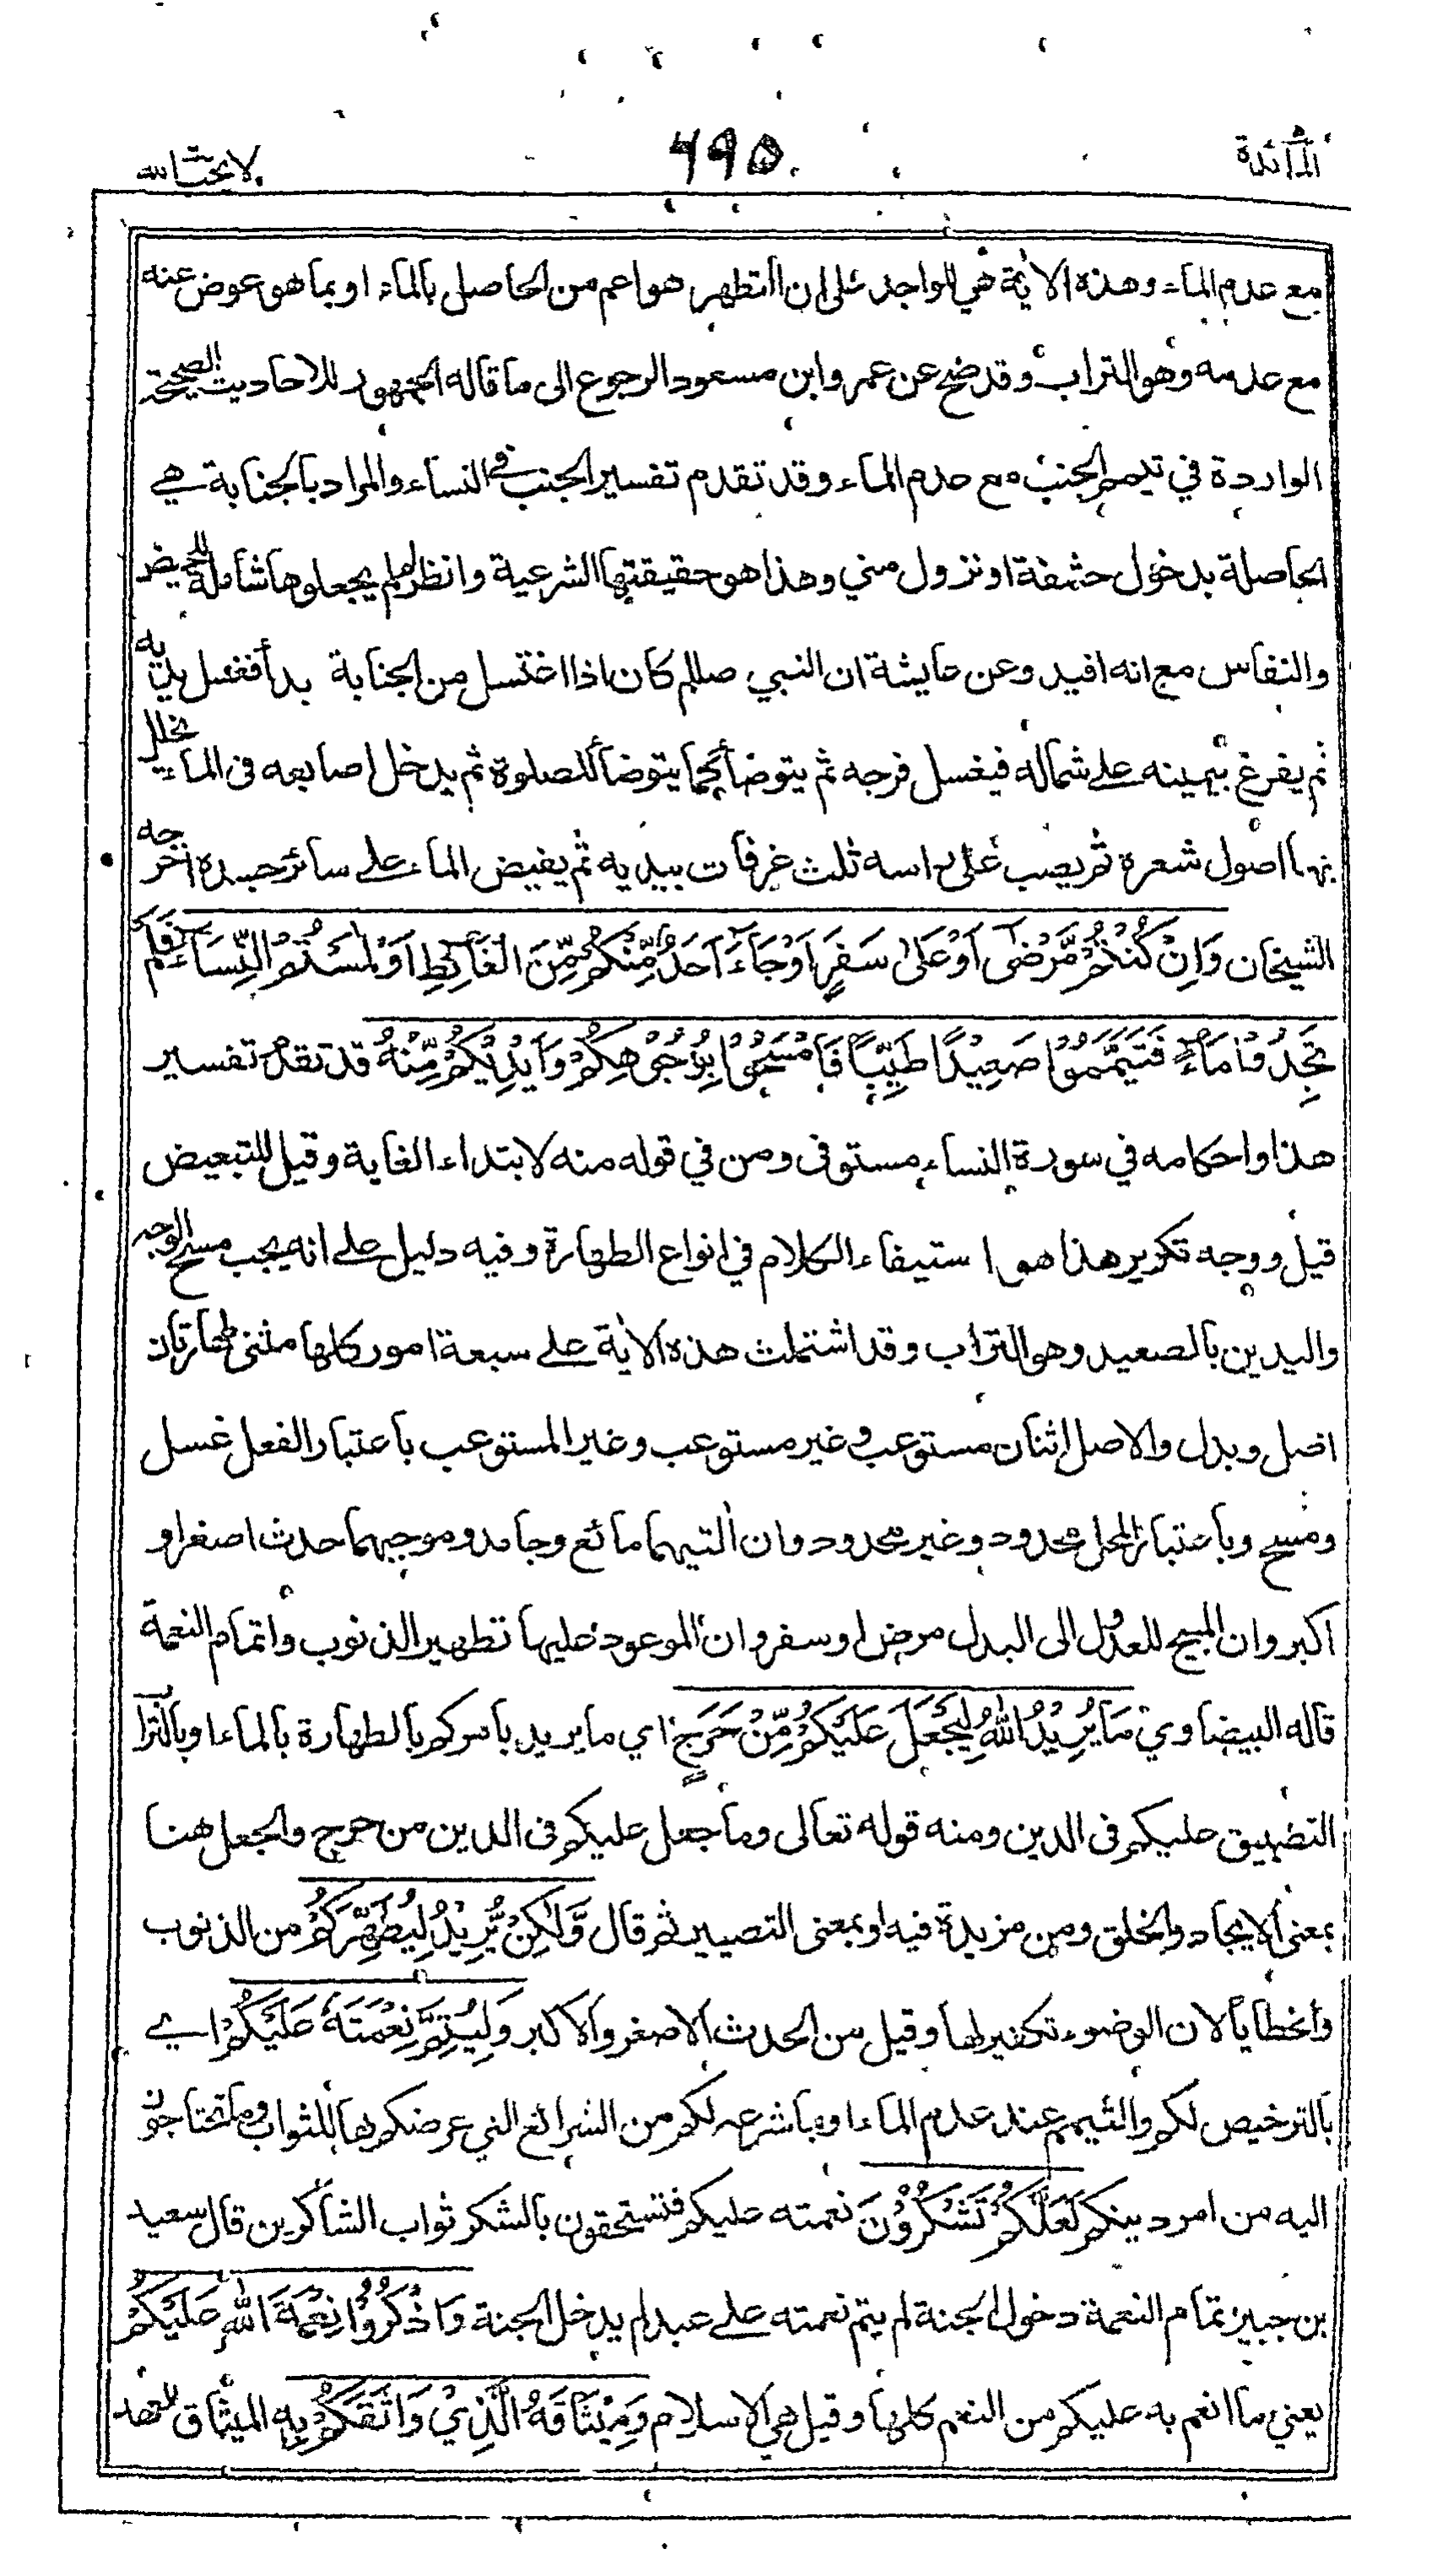 المائدة
٦٩٥
لا يحب الله
مع عدم الماء وهذه الآية هي للواجد على ان التطهر هو اعم من الحاصل بالماء او بما هو عوض عنه
مع عدمه وهو التراب وقد صح عن عمر وابن مسعود الرجوع الى ما قاله الجمهور للاحاديث الصحيحة
الواردة في تيمم الجنب مع عدم الماء وقد تقدم تفسير الجنب في النساء والمراد بالجنابة هي
الحاصلة بدخول حشفة او نزول مني وهذا هو حقيقتها الشرعية وانظر لم لم يجعلوها شاملة للحيض
والنفاس مع انه افيد وعن عايشة ان النبي صللم كان اذا اغتسل من الجنابة بدأ فغسل يديه
ثم يفرغ بيمينه على شماله فيغسل فرجه ثم يتوضأ كما يتوضأ للصلوة ثم يدخل اصابعه فى الماء يخلل
بها اصول شعره ثم يصب على راسه ثلث غرفات بيديه ثم يفيض الماء على سائر جسده اخرجه
الشيخان وَاِنْ كُنْتُمْ مَّرْضٰى اَوْ عَلٰى سَفَرٍ اَوْ جَآءَ اَحَدٌ مِّنْكُمْ مِّنَ الْغَآئِطِ اَوْ لٰمَسْتُمُ النِّسَآءَ فَلَمْ
تَجِدُوْا مَآءً فَتَيَمَّمُوْا صَعِيْدًا طَيِّبًا فَامْسَحُوْا بِوُجُوْهِكُمْ وَاَيْدِيْكُمْ مِّنْهُ قد تقدم تفسير
هذا واحكامه في سورة النساء مستوفى ومن في قوله منه لابتداء الغاية وقيل للتبعيض
قيل ووجه تكرير هذا هو استيفاء الكلام في انواع الطهارة وفيه دليل على انه يجب مسح الوجه
واليدين بالصعيد وهو التراب وقد اشتملت هذه الاية على سبعة امور كلها مثنى طهارتان
اصل وبدل والاصل اثنان مستوعب وغير مستوعب وغير المستوعب باعتبار الفعل غسل
ومسح وباعتبار المحل محدود وغير محدود وان التيهما مائع وجامد وموجبهما حدث اصغر او
اكبر وان المبيح للعدول الى البدل مرض او سفر وان الموعود عليها تطهير الذنوب واتمام النعمة
قاله البيضاوي مَا يُرِيْدُ اللّٰهُ لِيَجْعَلَ عَلَيْكُمْ مِّنْ حَرَجٍ اي ما يريد بامركم بالطهارة بالماء او بالتراب
التضييق عليكم فى الدين ومنه قوله تعالى وما جعل عليكم فى الدين من حرج والجعل هنا
بمعنى الايجاد والخلق ومن مزيدة فيه او بمعنى التصيير ثم قال وَّلٰكِنْ يُّرِيْدُ لِيُطَهِّرَكُمْ من الذنوب
والخطايا لان الوضوء تكفير لها وقيل من الحدث الاصغر والاكبر وَلِيُتِمَّ نِعْمَتَهٗ عَلَيْكُمْ اي
بالترخيص لكم والتيمم عند عدم الماء او بما شرعه لكم من الشرائع التي عرضكم بها للثواب وما تحتاجون
اليه من امر دينكم لَعَلَّكُمْ تَشْكُرُوْنَ نعمته عليكم فتستحقون بالشكر ثواب الشاكرين قال سعيد
بن جبير تمام النعمة دخول الجنة لم يتم نعمته على عبد لم يدخل الجنة وَاذْكُرُوْا نِعْمَةَ اللّٰهِ عَلَيْكُمْ
يعني ما انعم به عليكم من النعم كلها وقيل هي الاسلام وَمِيْثَاقَهُ الَّذِيْ وَاثَقَكُمْ بِهٖ الميثاق العهد